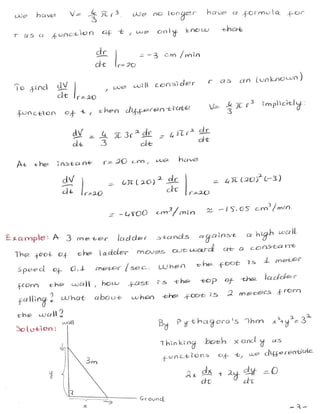 we have V= 4/3 π r³. We no longer have a formula for
r as a function of t, we only know that
dr/dt |r=20 = -3 cm/min
To find dV/dt |r=20, we will consider r as an (unknown)
function of t, then differentiate V= 4/3 π r³ implicitly:
dV/dt = 4/3 π 3r² dr/dt = 4πr² dr/dt
At the instant r=20 cm, we have
dV/dt |r=20 = 4π(20)² dr/dt |r=20 = 4π(20)²(-3)
= -4800 cm³/min ≈ -15.05 cm³/min.
Example: A 3 meter ladder stands against a high wall.
The foot of the ladder moves outward at a constant
speed of 0.1 meter/sec. When the foot is 1 meter
from the wall, how fast is the top of the ladder
falling? What about when the foot is 2 meters from
the wall?
Solution:
wall
By Pythagora's Thm x²+y²=3²
Thinking both x and y as
functions of t, we differentiate
3m
y
2x dx/dt + 2y dy/dt = 0
Ground
x
-2-